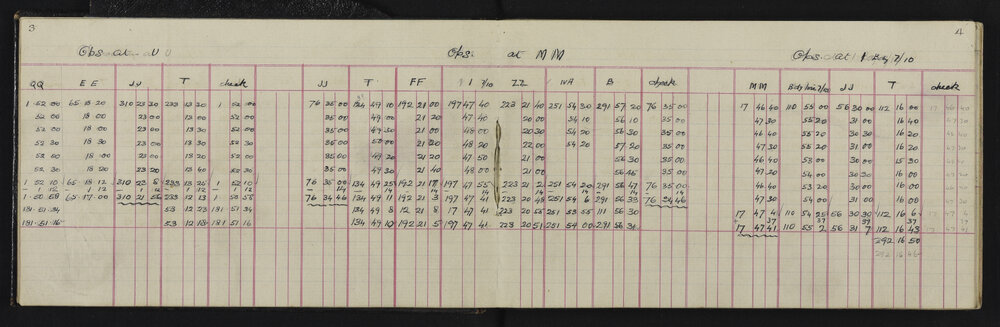 3
4
Obs at U U
Obs. at M M
Obs at Bdy 7/10
QQ EE JJ T check JJ T FF I 7/10 ZZ WA B check MM JJ T check
1 52 00 65 18 20 310 23 30 233 13 30 1 52 00 76 35 00 134 49 10 192 21 00 197 47 40 223 21 40 251 54 30 291 57 20 76 35 00 17 46 40 110 55 00 56 30 00 112 16 00 17 46 40
52 00 18 00 23 00 13 00 52 00 35 00 49 00 21 20 47 40 20 00 54 10 56 10 35 00 47 30 55 20 31 00 16 40 47 30
52 00 18 00 23 00 13 30 52 30 35 00 49 30 21 00 48 00 20 30 54 20 56 30 35 00 46 40 55 30 30 30 16 20 46 40
52 30 18 30 23 00 13 30 52 00 35 00 50 00 21 20 48 20 22 00 54 20 57 20 35 00 47 30 55 20 31 00 16 40 47 30
52 00 18 00 23 00 13 20 52 00 35 00 49 20 21 20 47 50 21 00 56 30 35 00 46 40 53 00 30 00 15 30 46 40
52 30 18 00 23 20 13 40 52 30 35 00 49 30 21 40 48 00 21 00 56 45 35 00 47 30 54 00 31 00 16 20 47 30
1 52 10 65 18 12 310 23 8 233 13 25 1 52 10 76 35 00 134 49 25 192 21 17 197 47 55 223 21 2 251 54 20 291 56 47 76 35 00 46 40 53 20 30 00 16 00 46 40
1 12 1 12 1 12 1 12 1 12 14 14 14 14 14 14 14 14 47 30 54 00 31 00 16 00 47 30
1 50 58 65 17 00 310 21 56 233 12 13 1 50 58 76 34 46 134 49 11 192 21 3 197 47 41 223 20 48 251 54 6 291 56 33 76 34 46
181 51 34 53 12 23 181 51 34 134 49 8 12 21 8 17 47 41 223 20 55 251 53 55 111 56 30 17 47 4 110 54 25 56 30 30 112 16 6 17 47 4
181 51 16 53 12 18 181 51 16 134 49 10 192 21 5 197 47 41 223 20 51 251 54 00 291 56 30 37 37 37 37 37
17 47 41 110 55 2 56 31 7 112 16 43 17 47 41
292 16 50
292 16 46